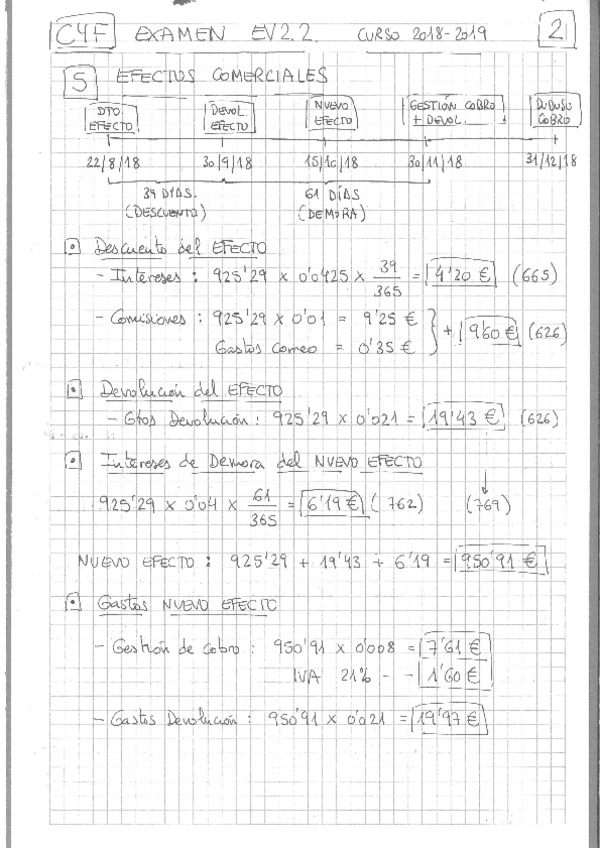 C4F EXAMEN EV2.2. CURSO 2018-2019 2
5 EFECTOS COMERCIALES
DTO EFECTO DEVOL. EFECTO NUEVO EFECTO GESTIÓN COBRO + DEVOL. DUDOSO COBRO
22/8/18 30/9/18 15/10/18 30/11/18 31/12/18
39 DÍAS. 61 DÍAS
(DESCUENTO) (DEMORA)
Descuento del EFECTO
- Intereses : 925'29 x 0'0425 x 39/365 = 4'20 € (665)
- Comisiones : 925'29 x 0'01 = 9'25 €
Gastos Correo = 0'35 € } + 9'60 € (626)
Devolución del EFECTO
- Gtos Devolución : 925'29 x 0'021 = 19'43 € (626)
Intereses de Demora del NUEVO EFECTO
925'29 x 0'04 x 61/365 = 6'19 € (762) (769)
NUEVO EFECTO : 925'29 + 19'43 + 6'19 = 950'91 €
Gastos NUEVO EFECTO
- Gestión de cobro : 950'91 x 0'008 = 7'61 €
IVA 21% - - 1'60 €
- Gastos Devolución : 950'91 x 0'021 = 19'97 €